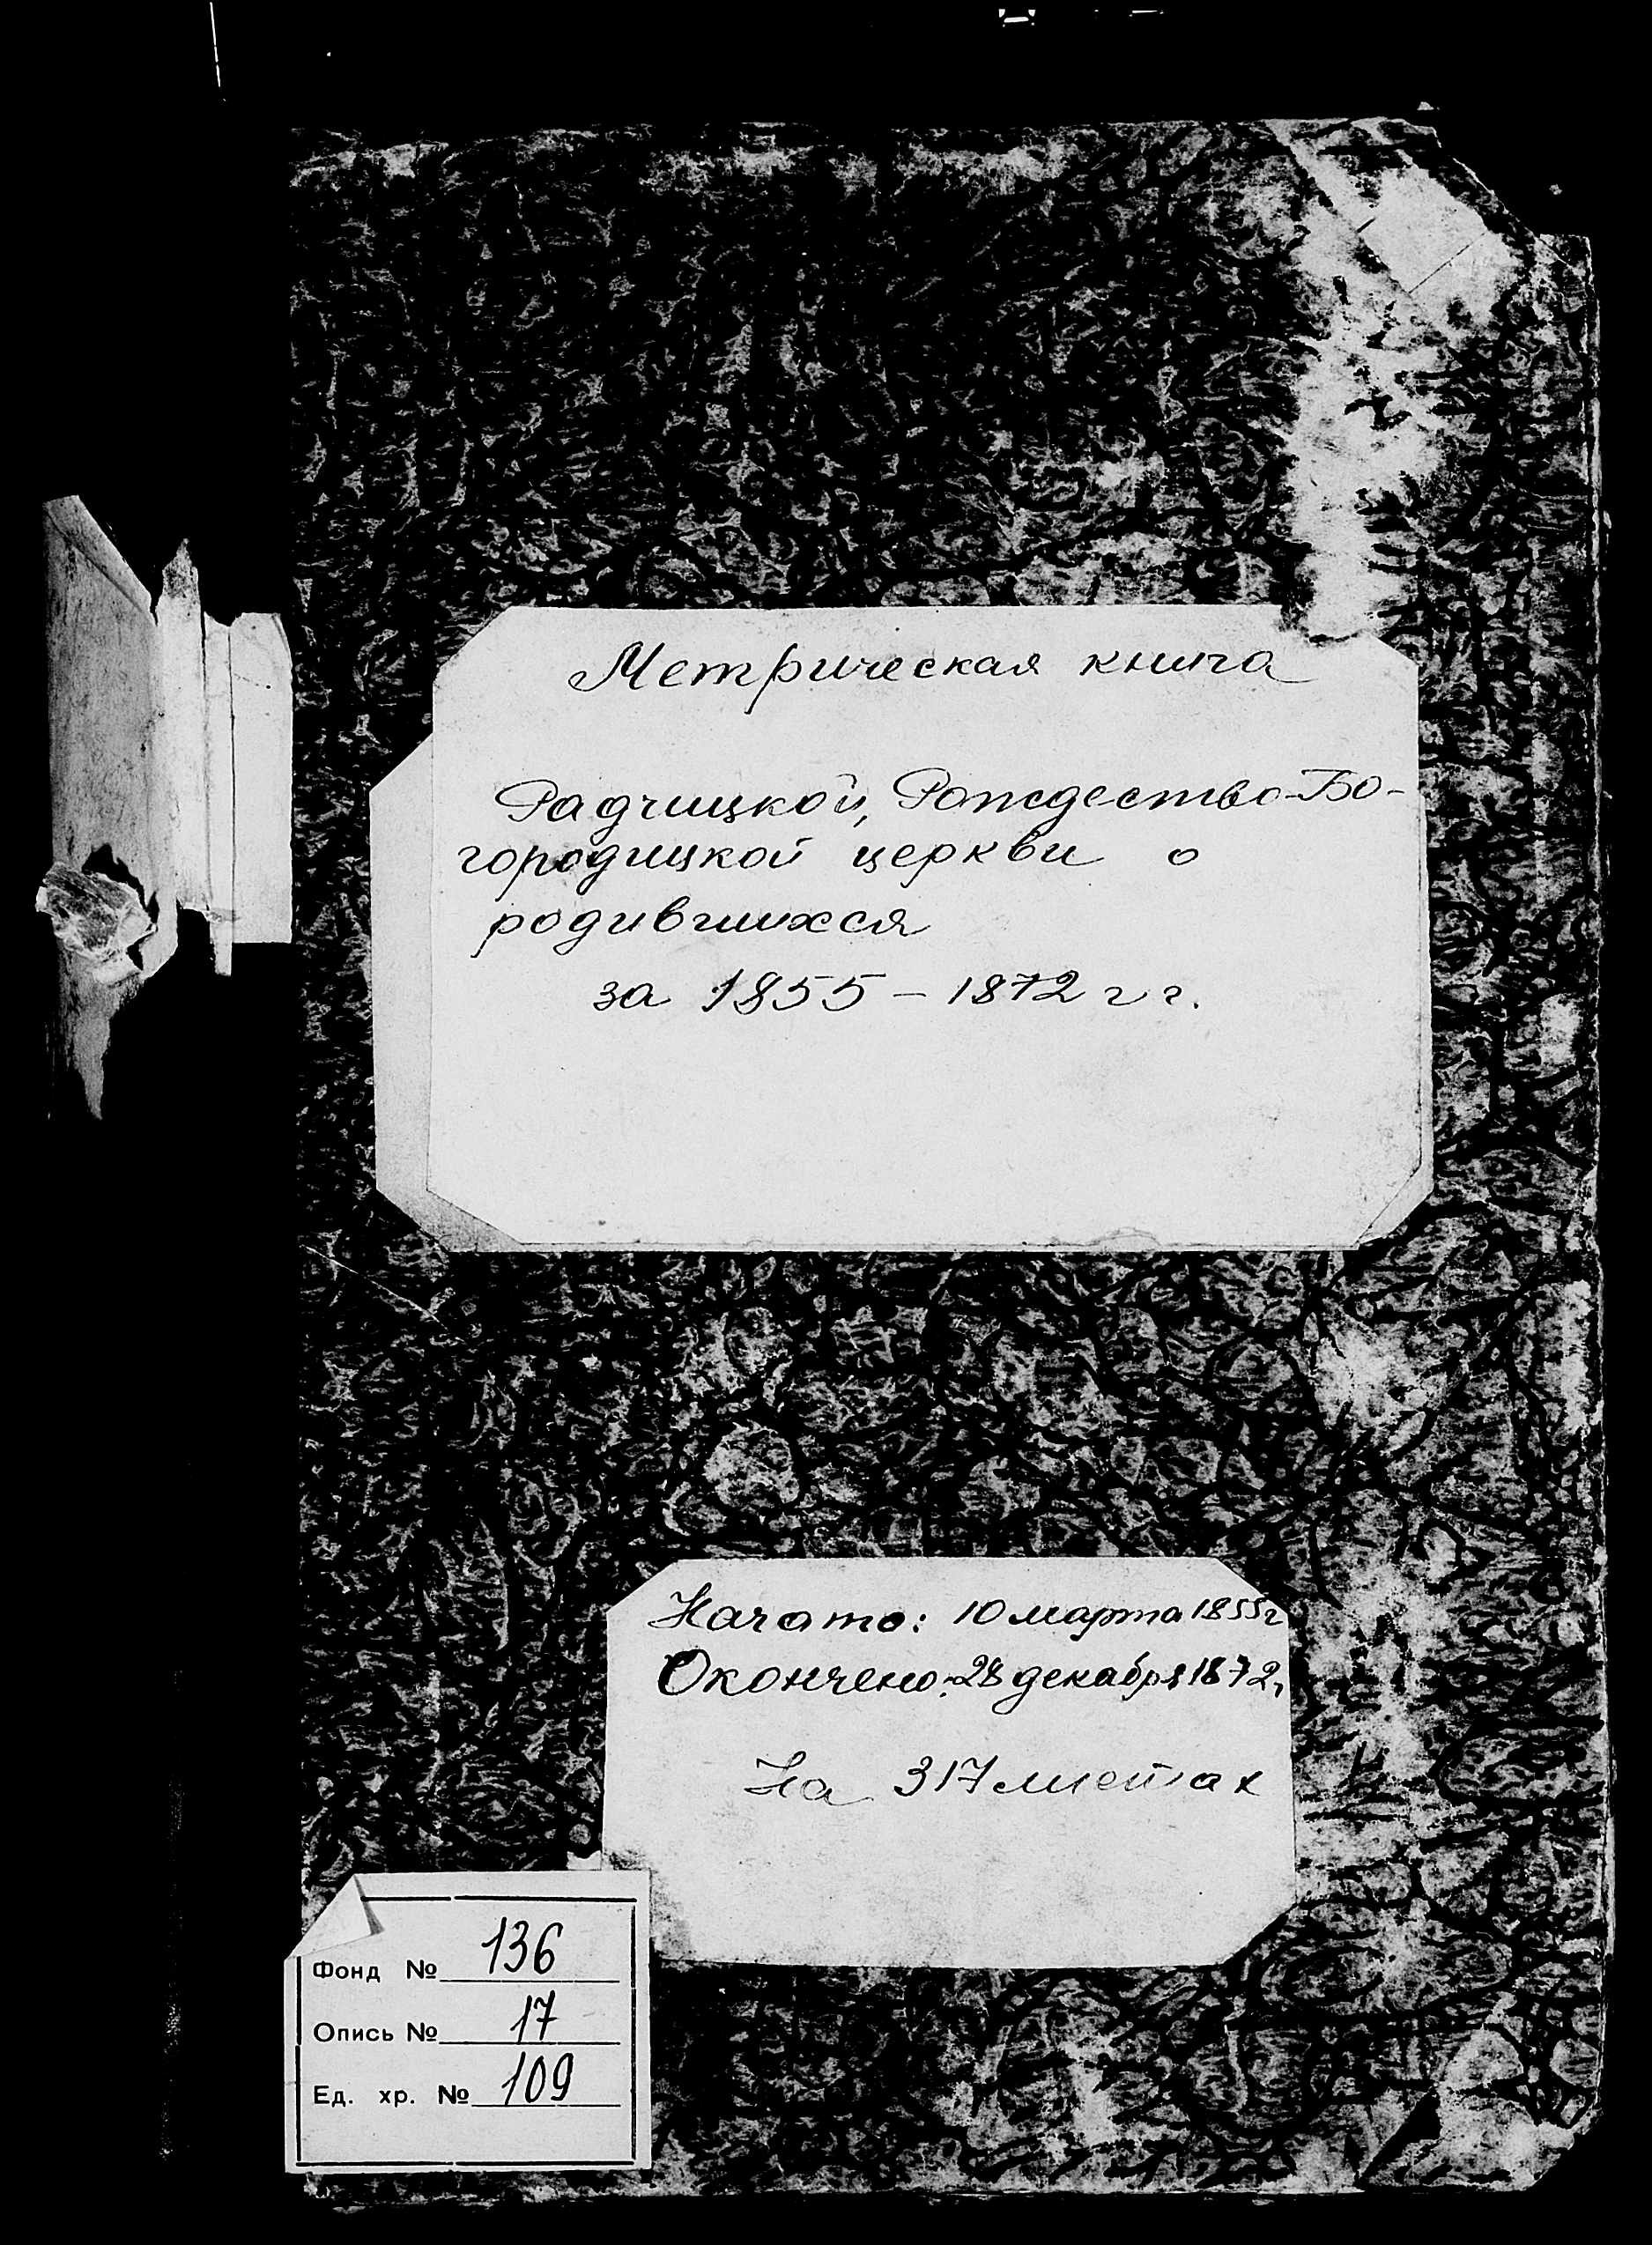 Метрическая книга
Радчицкой, Рождество-Бо-
городицкой церкви о
родившихся
за 1855 - 1872 гг.
Начато: 10 марта 1855 г
Окончено: 28 декабря 1872 г
На 317 листах
Фонд № 136
Опись № 17
Ед. хр. № 109